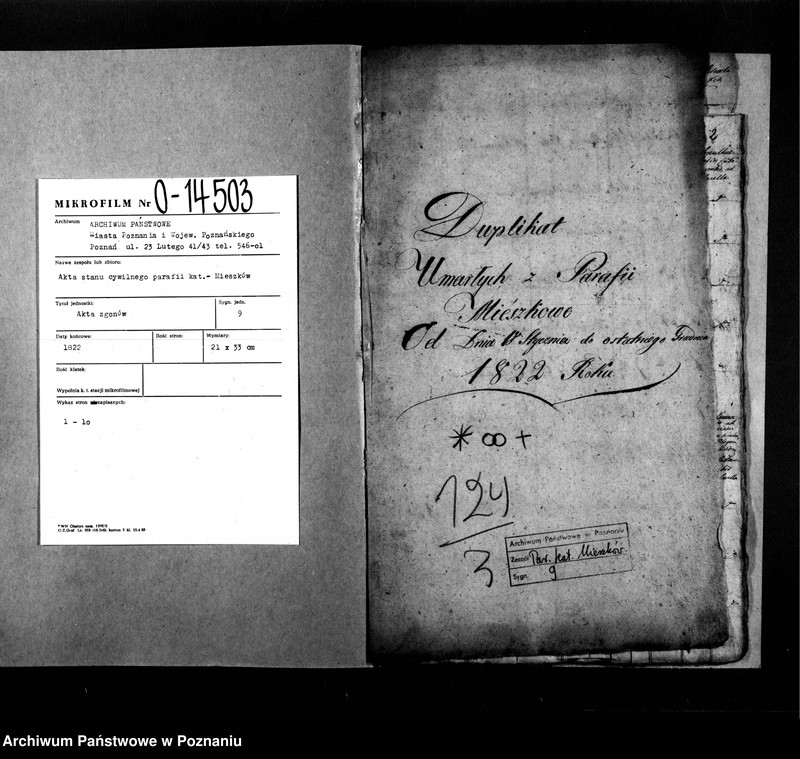 MIKROFILM Nr O-14503
Archiwum
ARCHIWUM PAŃSTWOWE
Miasta Poznania i Wojew. Poznańskiego
Poznań ul. 23 Lutego 41/43 tel. 546-ol
Nazwa zespołu lub zbioru:
Akta stanu cywilnego parafii kat.- Mieszków
Tytuł jednostki:
Akta zgonów
Sygn. jedn.
9
Daty końcowe:
1822
Ilość stron:
Wymiary:
21 x 33 cm
Ilość klatek:
Wypełnia k. t. stacji mikrofilmowej
Wykaz stron niezapisanych:
1 - 1o
Duplikat
Umarłych z Parafii
Mieszkowo
Od Dnia 1o Stycznia do ostatniego Grudnia
1822 Roku
* ∞ +
124
3
Archiwum Państwowe w Poznaniu
Zespół Par. kat. Mieszków
Sygn. 9
2
Archiwum Państwowe w Poznaniu